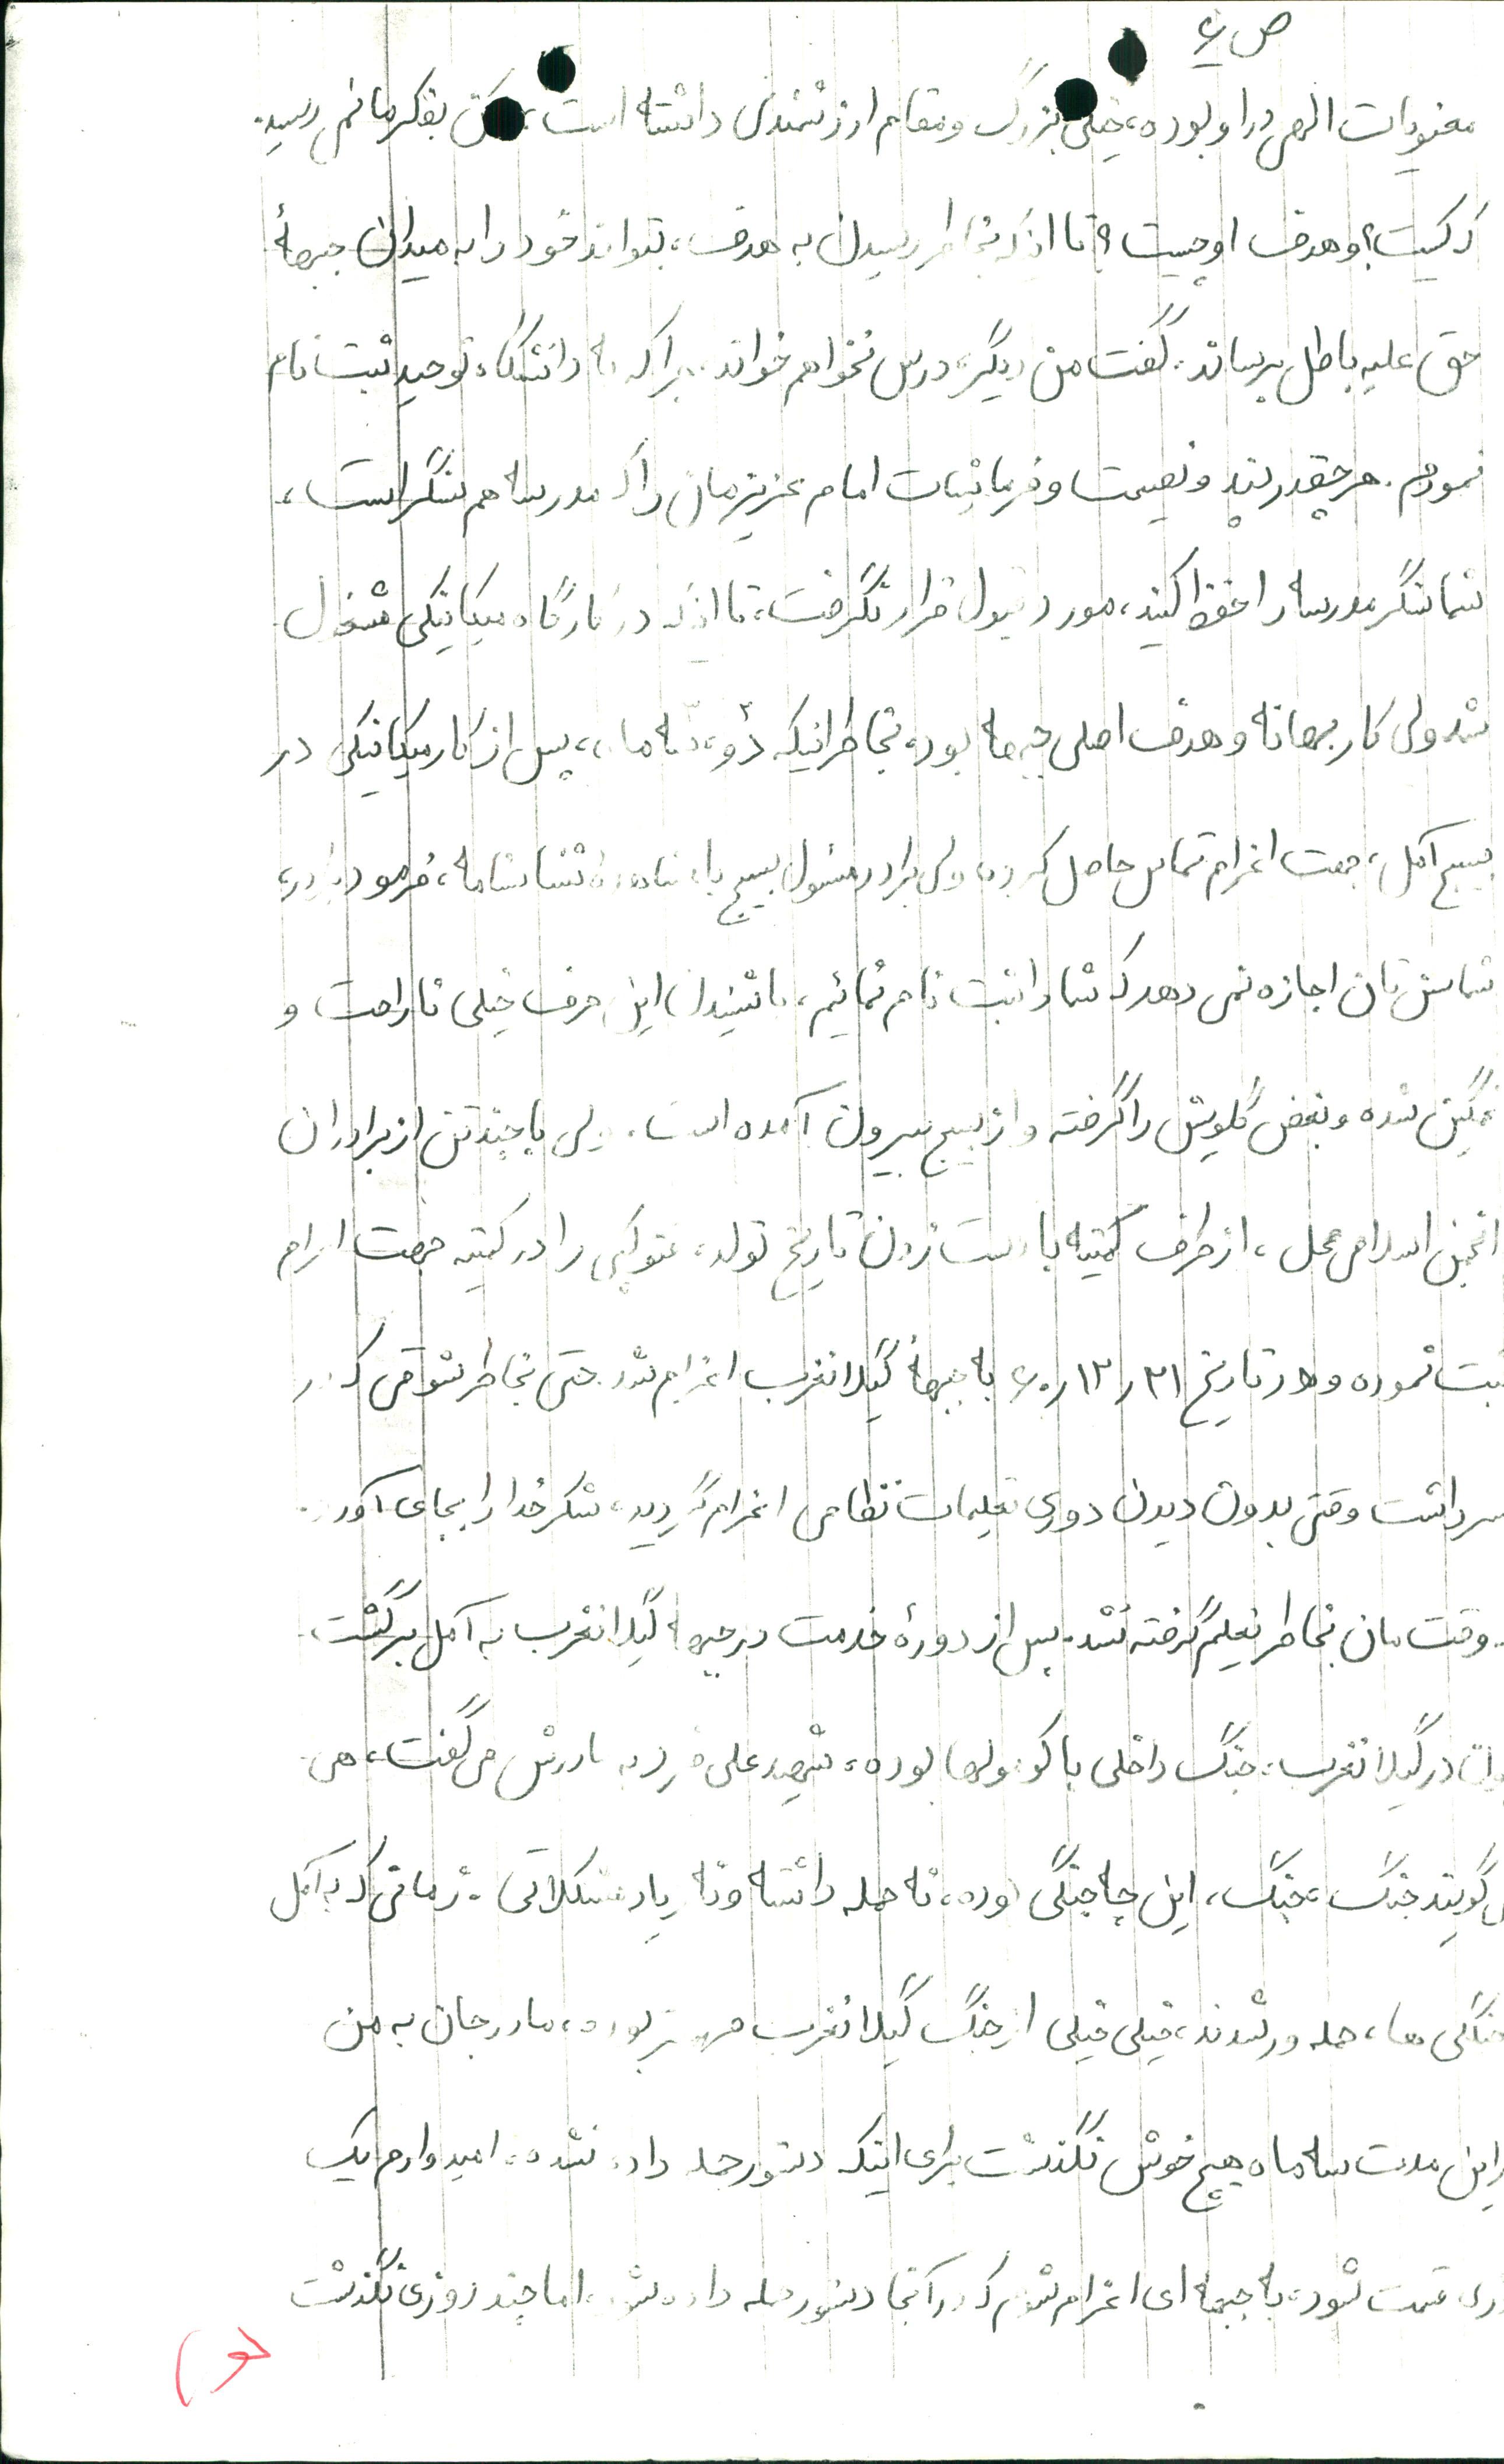 ص ۶
معنویات الهی در او بوده، خیلی بزرگ و مقام ارزشمندی داشته است، بفکرمانم رسید
که کیست؟ و هدف او چیست؟ تا اینکه بخاطر رسیدن به هدف، بتواند خود را به میدان جبههٔ
حق علیه باطل برساند. گفت من دیگر، درس نخواهم خواند. چرا که به دانشگاه توحید ثبت نام
نمودم. هر چقدر پند و نصیحت و فرمایشات امام عزیزمان را که مدرسه هم سنگر است،
شما سنگر مدرسه را حفظ کنید، مورد قبول قرار نگرفت، تا اینکه در کارگاه میکانیکی مشغول
شد ولی کار بهانه و هدف اصلی جبهه بود، بخاطر اینکه پس از کار میکانیکی در
بسیج آمل، جهت اعزام تماس حاصل کرده ولی برادر مسئول بسیج با مشاهدهٔ شناسنامه، فرمود برادر،
شما سن تان اجازه نمی دهد که شما را ثبت نام نمائیم، با شنیدن این حرف خیلی ناراحت و
غمگین شده و بغض گلویش را گرفته و از بسیج بیرون آمده است. ولی با چند تن از برادران
انجمن اسلامی محل، از طرف کمیته با دست زدن تاریخ تولد، فتوکپی را در کمیته جهت اعزام
ثبت نموده و در تاریخ ۲۱ ر ۱۲ ر ۶۰ به جبههٔ گیلانغرب اعزام شد. حتی بخاطر شوقی که در
سر داشت وقتی بدون دیدن دوری تعلیمات نظامی اعزام گردید، شکر خدا را بجای آورد
وقت مان بخاطر تعلیم گرفته نشد. پس از دورهٔ خدمت در جبهه گیلانغرب به آمل برگشت.
در گیلانغرب، جنگ داخلی با کومولها بوده، شهید علی به مادرش می گفت، هی
می گویند جنگ، جنگ، این چه جنگی بوده، نه حمله داشته و نه زیاد مشکلاتی. زمانی که به آمل
جنگلی ها، حمله ور شدند، خیلی خیلی از جنگ گیلانغرب بوده، مادر جان به من
در این مدت سه ماه هیچ خوش نگذشت برای اینکه دستور حمله داده نشده. امیدوارم یک
قسمت شود، به جبهه ای اعزام شوم که در آنجا دستور حمله داده شود. اما چند روزی نگذشت